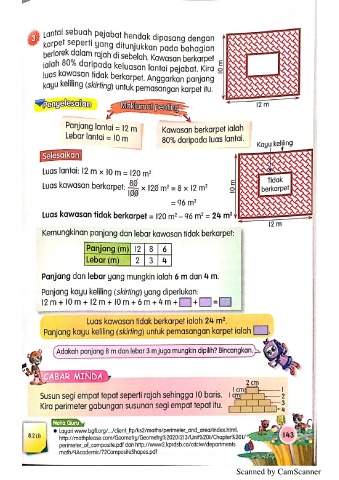 3 Lantai sebuah pejabat hendak dipasang dengan
karpet seperti yang ditunjukkan pada bahagian
berlorek dalam rajah di sebelah. Kawasan berkarpet
ialah 80% daripada keluasan lantai pejabat. Kira
luas kawasan tidak berkarpet. Anggarkan panjang
kayu keliling (skirting) untuk pemasangan karpet itu.
10 m
12 m
Penyelesaian
Maklumat penting
Panjang lantai = 12 m
Lebar lantai = 10 m
Kawasan berkarpet ialah
80% daripada luas lantai.
Kayu keliling
Tidak
berkarpet
10 m
12 m
Selesaikan
Luas lantai: 12 m × 10 m = 120 m²
Luas kawasan berkarpet: 80/100 × 120 m² = 8 × 12 m²
= 96 m²
Luas kawasan tidak berkarpet = 120 m² – 96 m² = 24 m²
Kemungkinan panjang dan lebar kawasan tidak berkarpet:
Panjang (m) 12 8 6
Lebar (m) 2 3 4
Panjang dan lebar yang mungkin ialah 6 m dan 4 m.
Panjang kayu keliling (skirting) yang diperlukan:
12 m + 10 m + 12 m + 10 m + 6 m + 4 m + + =
Luas kawasan tidak berkarpet ialah 24 m².
Panjang kayu keliling (skirting) untuk pemasangan karpet ialah .
Adakah panjang 8 m dan lebar 3 m juga mungkin dipilih? Bincangkan.
CABAR MINDA
Susun segi empat tepat seperti rajah sehingga 10 baris.
Kira perimeter gabungan susunan segi empat tepat itu.
2 cm
1 cm
1 cm
1
2
3
4
Nota Guru
8.2 (i)
143
Scanned by CamScanner